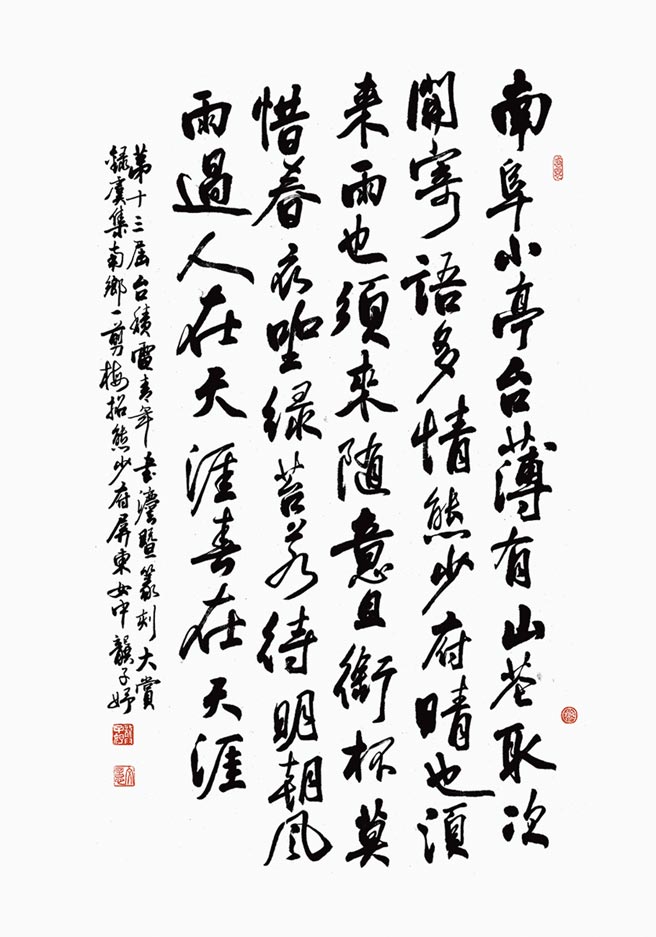 南阜小亭台薄有山花取次
開寄語多情熊少府晴也須
來雨也須來隨意且銜杯莫
惜春衣坐綠苔若待明朝風
雨過人在天涯春在天涯
第十三屆台積電青年書法暨篆刻大賞
錄虞集南鄉一剪梅招熊少府屏東女中龔子妤